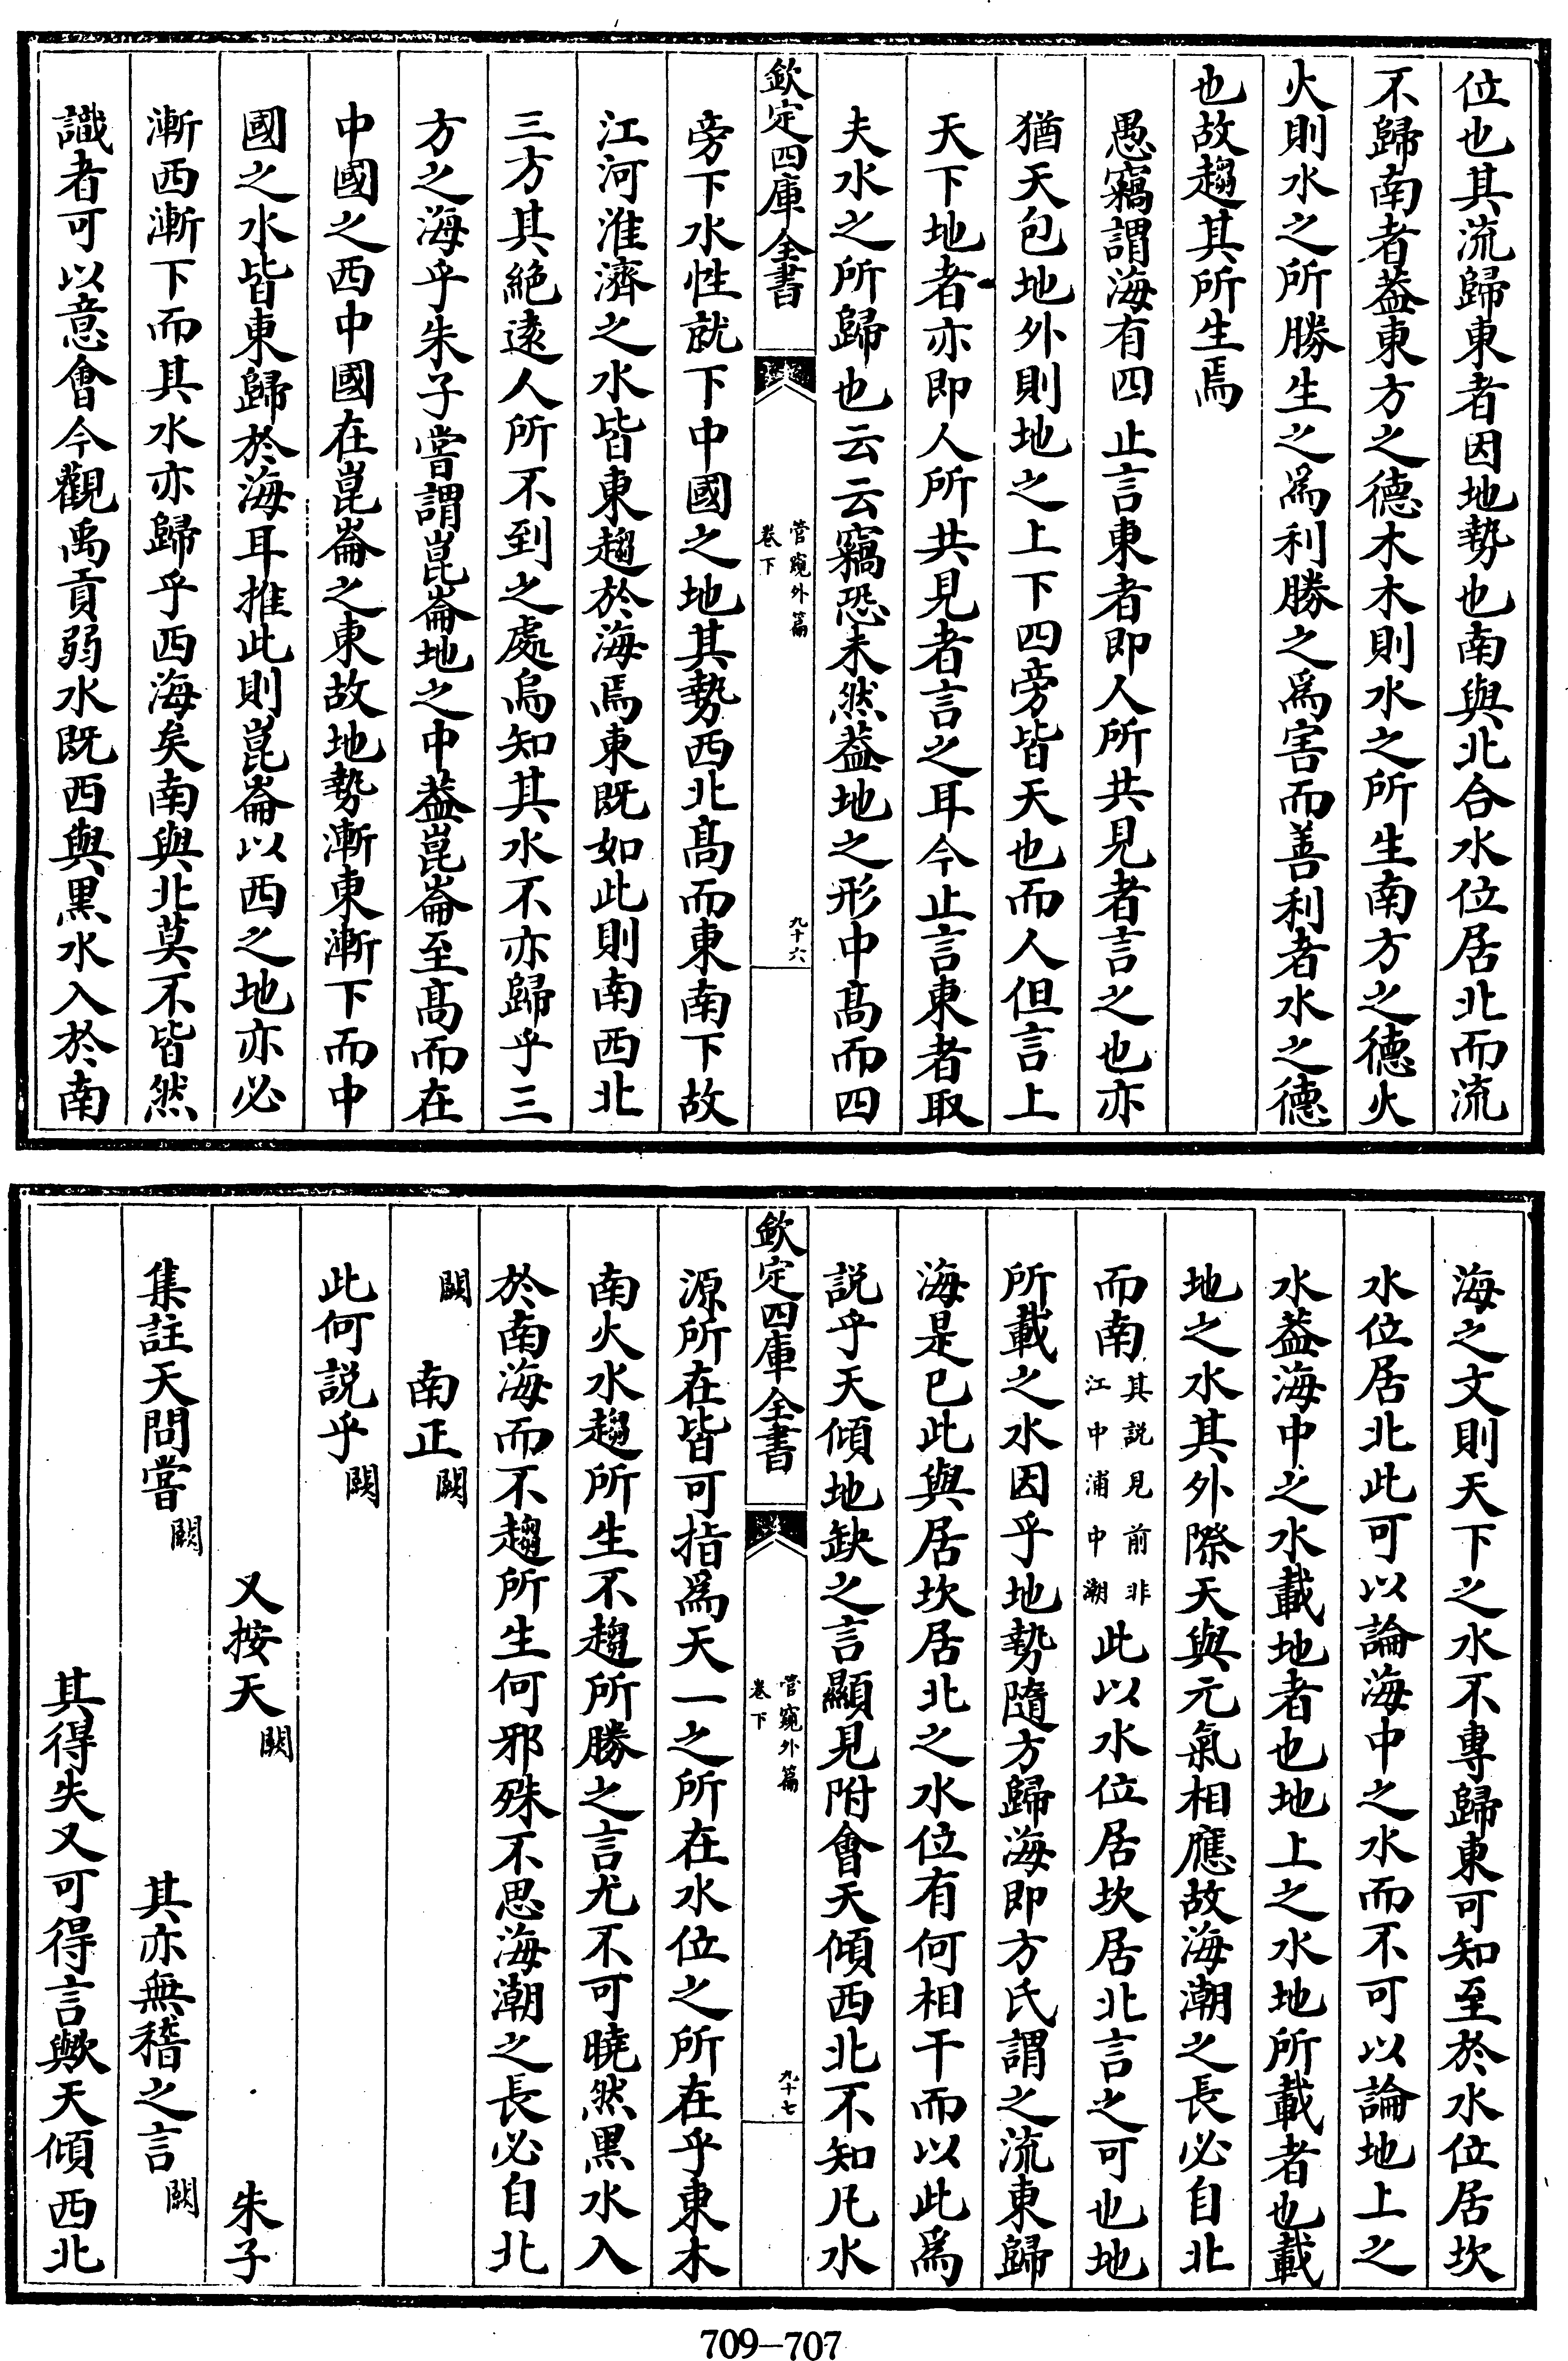 位也其流歸東者因地勢也南與北合水位居北而流
不歸南者葢東方之德木木則水之所生南方之德火
火則水之所勝生之爲利勝之爲害而善利者水之德
也故趨其所生焉
愚竊謂海有四止言東者即人所共見者言之也亦
猶天包地外則地之上下四旁皆天也而人但言上
天下地者亦即人所共見者言之耳今止言東者取
夫水之所歸也云云竊恐未然葢地之形中高而四
欽定四庫全書
管窺外篇
卷下
九十六
旁下水性就下中國之地其勢西北高而東南下故
江河淮濟之水皆東趨於海焉東既如此則南西北
三方其絶逺人所不到之處烏知其水不亦歸乎三
方之海乎朱子嘗謂崑崙地之中葢崑崙至高而在
中國之西中國在崑崙之東故地勢漸東漸下而中
國之水皆東歸於海耳推此則崑崙以西之地亦必
漸西漸下而其水亦歸乎西海矣南與北莫不皆然
識者可以意㑹今觀禹貢弱水既西與黒水入於南
海之文則天下之水不專歸東可知至於水位居坎
水位居北此可以論海中之水而不可以論地上之
水葢海中之水載地者也地上之水地所載者也載
地之水其外際天與元氣相應故海潮之長必自北
而南其說見前非江中浦中潮此以水位居坎居北言之可也地
所載之水因乎地勢隨方歸海即方氏謂之流東歸
海是已此與居坎居北之水位有何相干而以此爲
説乎天傾地缺之言顯見附會天傾西北不知凡水
欽定四庫全書
管窺外篇
卷下
九十七
源所在皆可指爲天一之所在水位之所在乎東木
南火水趨所生不趨所勝之言尤不可曉然黒水入
於南海而不趨所生何邪殊不思海潮之長必自北
闕 南正闕
此何説乎闕
又按天闕 朱子
集註天問嘗闕 其亦無稽之言闕
其得失又可得言歟天傾西北
709—707